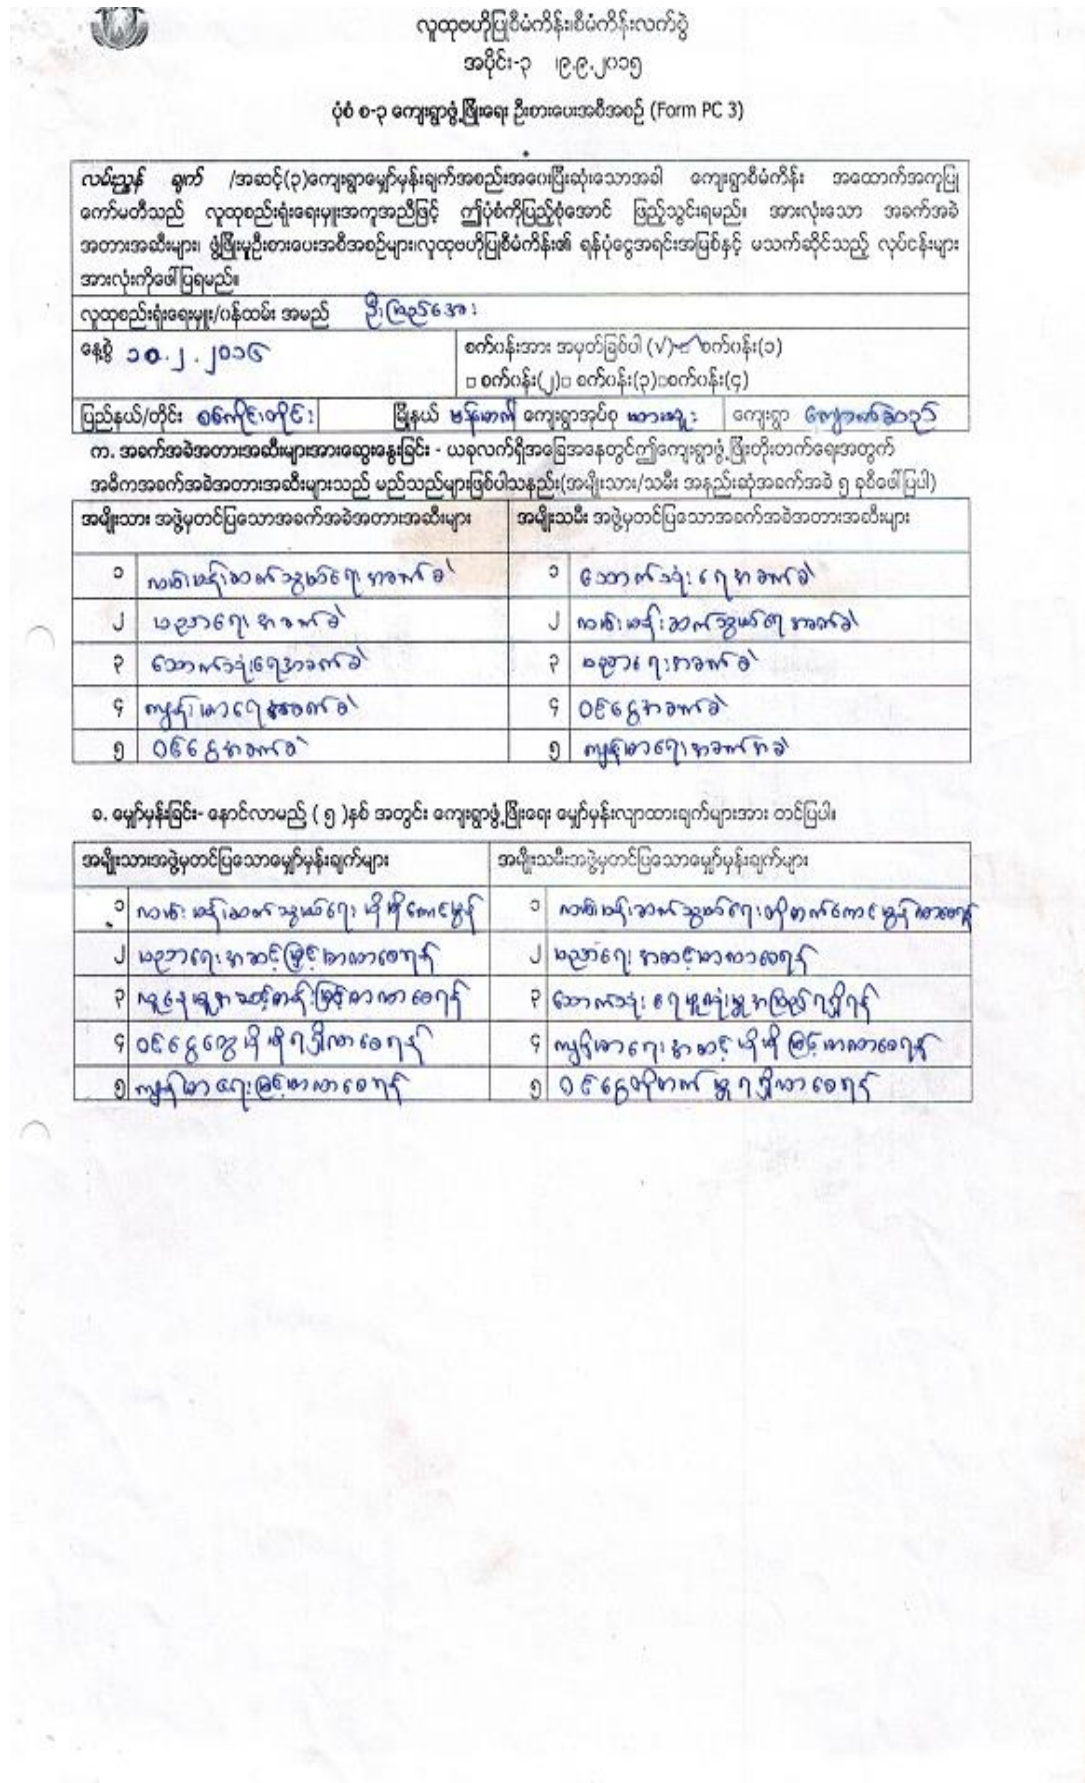 လူထုဗဟိုပြုစီမံကိန်း၊စီမံကိန်းလက်စွဲ
အပိုင်း-၃ ၊၉.၉.၂၀၁၅
ပုံစံ စ-၃ ကျေးရွာဖွံ့ဖြိုးရေး ဦးစားပေးအစီအစဉ် (Form PC 3)
လမ်းညွှန် ချက် /အဆင့်(၃)ကျေးရွာမျှော်မှန်းချက်အစည်းအဝေးပြီးဆုံးသောအခါ ကျေးရွာစီမံကိန်း အထောက်အကူပြု
ကော်မတီသည် လူထုစည်းရုံးရေးမှူးအကူအညီဖြင့် ဤပုံစံကိုပြည့်စုံအောင် ဖြည့်သွင်းရမည်။ အားလုံးသော အခက်အခဲ
အတားအဆီးများ၊ ဖွံ့ဖြိုးမှုဦးစားပေးအစီအစဉ်များ၊လူထုဗဟိုပြုစီမံကိန်း၏ ရန်ပုံငွေအရင်းအမြစ်နှင့် မသက်ဆိုင်သည့် လုပ်ငန်းများ
အားလုံးကိုဖေါ်ပြရမည်။
လူထုစည်းရုံးရေးမှူး/ဝန်ထမ်း အမည် ဦးပြည့်အေး
နေ့စွဲ ၁၀.၂.၂၀၁၆ စက်ဝန်းအား အမှတ်ခြစ်ပါ (√) စက်ဝန်း(၁)
□ စက်ဝန်း(၂)□ စက်ဝန်း(၃)□စက်ဝန်း(၄)
ပြည်နယ်/တိုင်း စစ်ကိုင်းတိုင်း မြို့နယ် ဗန်းမောက် ကျေးရွာအုပ်စု ကျေးရွာ
က. အခက်အခဲအတားအဆီးများအားဆွေးနွေးခြင်း - ယခုလက်ရှိအခြေအနေတွင်ဤကျေးရွာဖွံ့ဖြိုးတိုးတက်ရေးအတွက်
အဓိကအခက်အခဲအတားအဆီးများသည် မည်သည်များဖြစ်ပါသနည်း(အမျိုးသား/သမီး အနည်းဆုံးအခက်အခဲ ၅ ခုဝီဖေါ်ပြပါ)
အမျိုးသား အဖွဲ့မှတင်ပြသောအခက်အခဲအတားအဆီးများ အမျိုးသမီး အဖွဲ့မှတင်ပြသောအခက်အခဲအတားအဆီးများ
၁ လမ်းပန်းဆက်သွယ်ရေး အခက်ခဲ ၁ သောက်သုံးရေအခက်ခဲ
၂ ပညာရေးအခက်ခဲ ၂ လမ်းပန်းဆက်သွယ်ရေအခက်ခဲ
၃ သောက်သုံးရေအခက်ခဲ ၃ ပညာရေးအခက်ခဲ
၄ ကျန်းမာရေးအခက်ခဲ ၄ ဝင်ငွေအခက်ခဲ
၅ ဝင်ငွေအခက်ခဲ ၅ ကျန်းမာရေးအခက်အခဲ
ခ. မျှော်မှန်းခြင်း- နောင်လာမည် ( ၅ )နှစ် အတွင်း ကျေးရွာဖွံ့ဖြိုးရေး မျှော်မှန်းလျာထားချက်များအား တင်ပြပါ။
အမျိုးသားအဖွဲ့မှတင်ပြသောမျှော်မှန်းချက်များ အမျိုးသမီးအဖွဲ့မှတင်ပြသောမျှော်မှန်းချက်များ
၁ လမ်းပန်းဆက်သွယ်ရေး ပိုမိုကောင်းမွန် ၁ လမ်းပန်းဆက်သွယ်ရေးတိုးတက်ကောင်းမွန်လာစေရန်
၂ ပညာရေးအဆင့်မြှင့်မာလာစေရန် ၂ ပညာရေး အဆင့်မာလာစေရန်
၃ လူနေမှုအဆင့်တန်းမြှင့်မာလာစေရန် ၃ သောက်သုံးရေ ရရှိရန်
၄ ဝင်ငွေတွေပိုမိုရရှိလာစေရန် ၄ ကျန်းမာရေးအဆင့်ပိုမိုမြှင့်မာလာစေရန်
၅ ကျန်းမာရေးမြှင့်မာလာစေရန် ၅ ဝင်ငွေတိုးတက်မှုရရှိလာစေရန်